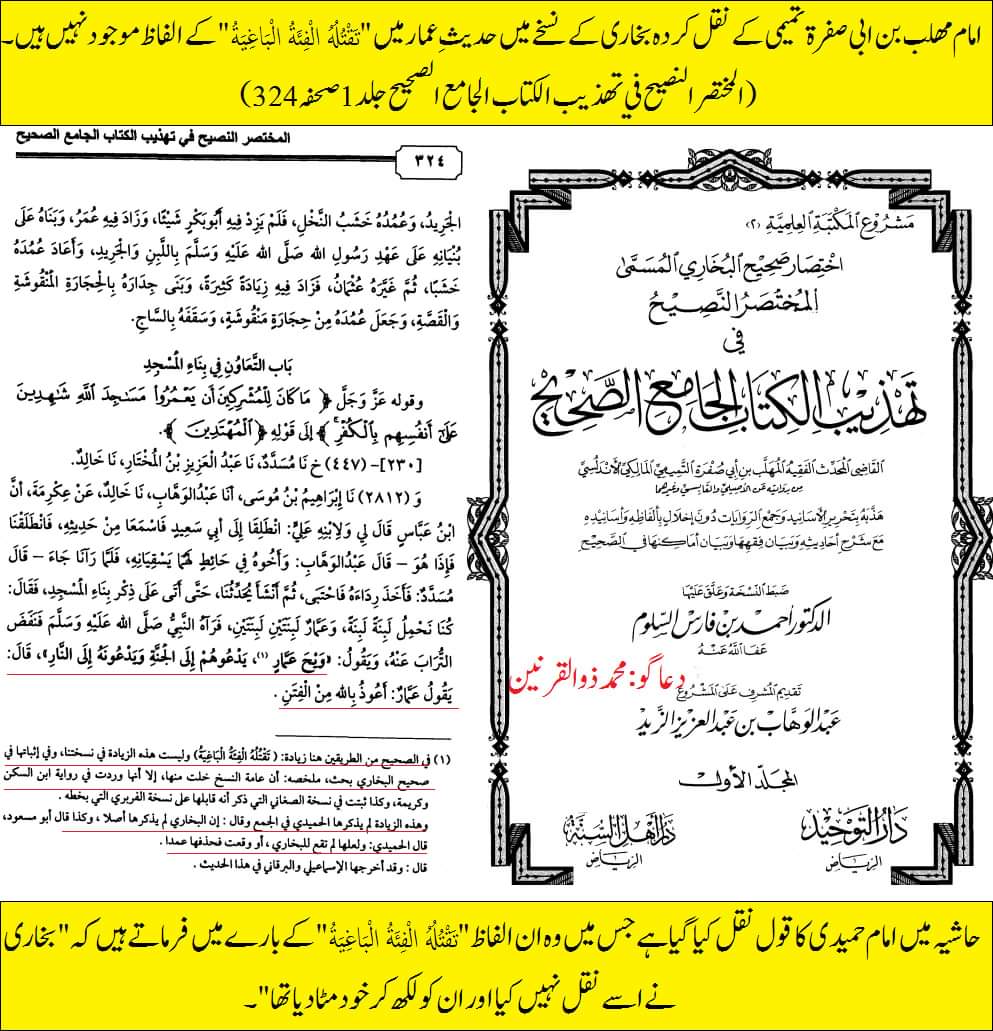 امام مھلب بن ابی صفرۃ تمیمی کے نقل کردہ بخاری کے نسخے میں حدیثِ عمار میں "تَقْتُلُهُ الْفِئَةُ الْبَاغِيَةُ" کے الفاظ موجود نہیں ہیں۔
(المختصر النصیح في تھذیب الکتاب الجامع الصحیح جلد 1 صفحہ 324)
المختصر النصيح في تهذيب الكتاب الجامع الصحيح
٣٢٤
الجَرِيدُ، وَعُمُدُهُ خَشَبُ النَّخْلِ، فَلَمْ يَزِدْ فِيهِ أَبُوبَكْرٍ شَيْئًا، وَزَادَ فِيهِ عُمَرُ، وَبَنَاهُ عَلَى
بُنْيَانِهِ عَلَى عَهْدِ رَسُولِ الله صَلَّى الله عَلَيْهِ وَسَلَّمَ بِاللَّبِنِ وَالْجَرِيدِ، وَأَعَادَ عُمُدَهُ
خَشَبًا، ثُمَّ غَيَّرَهُ عُثْمَانُ، فَزَادَ فِيهِ زِيَادَةً كَثِيرَةً، وَبَنَى جِدَارَهُ بِالحِجَارَةِ المَنْقُوشَةِ
وَالْقَصَّةِ، وَجَعَلَ عُمُدَهُ مِنْ حِجَارَةٍ مَنْقُوشَةٍ، وَسَقَفَهُ بِالسَّاجِ.
بَاب التَّعَاوُنِ فِي بِنَاءِ المَسْجِدِ
وقوله عَزَّ وَجَلَّ ﴿ مَا كَانَ لِلْمُشْرِكِينَ أَن يَعْمُرُوا۟ مَسَـٰجِدَ ٱللَّهِ شَـٰهِدِينَ
عَلَىٰٓ أَنفُسِهِم بِٱلْكُفْرِ ﴾ إِلَى قَوْلِهِ ﴿ ٱلْمُهْتَدِينَ ﴾.
[٢٣٠]- (٤٤٧) خ نَا مُسَدَّدٌ، نَا عَبْدُ الْعَزِيزِ بْنُ المُخْتَارِ، نَا خَالِدٌ.
وَ (٢٨١٢) نَا إِبْرَاهِيمُ بْنُ مُوسَى، أَنَا عَبْدُالوَهَّابِ، نَا خَالِدٌ، عَنْ عِكْرِمَةَ، أَنَّ
ابْنَ عَبَّاسٍ قَالَ لِي وَلِابْنِهِ عَلِيٍّ: انْطَلِقَا إِلَى أَبِي سَعِيدٍ فَاسْمَعَا مِنْ حَدِيثِهِ، فَانْطَلَقْنَا
فَإِذَا هُوَ – قَالَ عَبْدُالوَهَّابِ: وَأَخُوهُ فِي حَائِطٍ لَهُمَا يَسْقِيَانِهِ، فَلَمَّا رَآنَا جَاءَ – قَالَ
مُسَدَّدٌ: فَأَخَذَ رِدَاءَهُ فَاحْتَبَى، ثُمَّ أَنْشَأَ يُحَدِّثُنَا، حَتَّى أَتَى عَلَى ذِكْرِ بِنَاءِ المَسْجِدِ، فَقَالَ:
كُنَّا نَحْمِلُ لَبِنَةً لَبِنَةً، وَعَمَّارٌ لَبِنَتَيْنِ لَبِنَتَيْنِ، فَرَآهُ النَّبِيُّ صَلَّى الله عَلَيْهِ وَسَلَّمَ فَنَفَضَ
التُّرَابَ عَنْهُ، وَيَقُولُ: «وَيْحَ عَمَّارٍ (١)، يَدْعُوهُمْ إِلَى الْجَنَّةِ وَيَدْعُونَهُ إِلَى النَّارِ»، قَالَ:
يَقُولُ عَمَّارٌ: أَعُوذُ بِالله مِنْ الْفِتَنِ .
(١) في الصحيح من الطريقين هنا زيادة: ( تَقْتُلُهُ الْفِئَةُ الْبَاغِيَةُ) وليست هذه الزيادة في نسختنا، وفي إثباتها في
صحيح البخاري بحث، ملخصه: أن عامة النسخ خلت منها، إلا أنها وردت في رواية ابن السكن
وكريمة، وكذا ثبتت في نسخة الصغاني التي ذكر أنه قابلها على نسخة الفربري التي بخطه .
وهذه الزيادة لم يذكرها الحميدي في الجمع وقال : إن البخاري لم يذكرها أصلا ، وكذا قال أبو مسعود،
قال الحميدي: ولعلها لم تقع للبخاري ، أو وقعت فحذفها عمدا .
قال : وقد أخرجها الإسماعيلي والبرقاني في هذا الحديث .
مَشرُوع المَكتَبَة العِلميَّة (٢)
اختِصَار صَحِيح البُخَاري المُسَمّى
المُختَصَرُ النَّصِيحُ
في
تَهذِيبِ الكِتَابِ الجَامِعِ الصَّحِيحِ
القَاضِي المُحَدِّث الفَقِيه المُهَلَّب بن أبي صُفرَة التَّمِيمي المَالِكي الأندَلُسي
مِن رِوَايَتِه عَن الأَصِيلي وَالقَابِسي وَغَيرهِمَا
هَذَّبَه بِتَحرِير الأَسَانِيد وَجَمع الرِّوَايَات دُونَ إخلَال بِألفَاظِه وَأَسَانِيدِه
مَعَ شَرح أحَادِيثِه وَبَيَان فِقهِهَا وَبَيَان أمَاكِنِهَا في الصَّحِيح
ضَبَط النُّسخَة وَعَلَّق عَلَيهَا
الدكتور أحمد بن فارس السلوم
عَفَا اللَّه عَنه
دعا گو: محمد ذوالقرنین
تَقدِيم المُشرِف عَلى المَشرُوع
عبد الوهاب بن عبد العزيز الزيد
المجلد الأول
دَارُ التَّوحِيد
الرياض
دَار أهل السُّنَّة
الرياض
حاشیہ میں امام حمیدی کا قول نقل کیا گیا ہے جس میں وہ ان الفاظ "تَقْتُلُهُ الْفِئَةُ الْبَاغِيَةُ" کے بارے میں فرماتے ہیں کہ "بخاری
نے اسے نقل نہیں کیا اور ان کو لکھ کر خود مٹا دیا تھا"۔